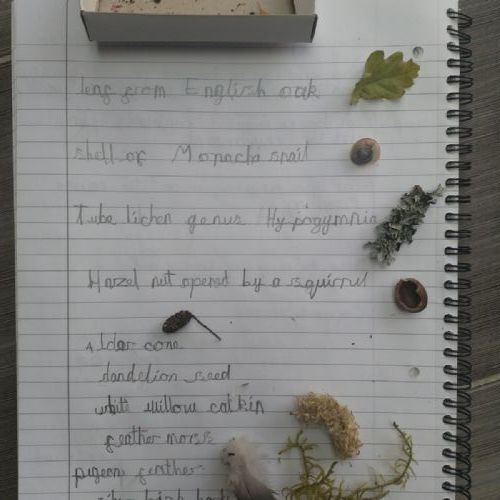 leng from English oak
shell of Monacha snail
Tube lichen genus Hypogymnia
Hazel nut opened by a squirrul
Alder cone
dandelion seed
white willow catkin
feather moss
pigeon feather
silver birch bark